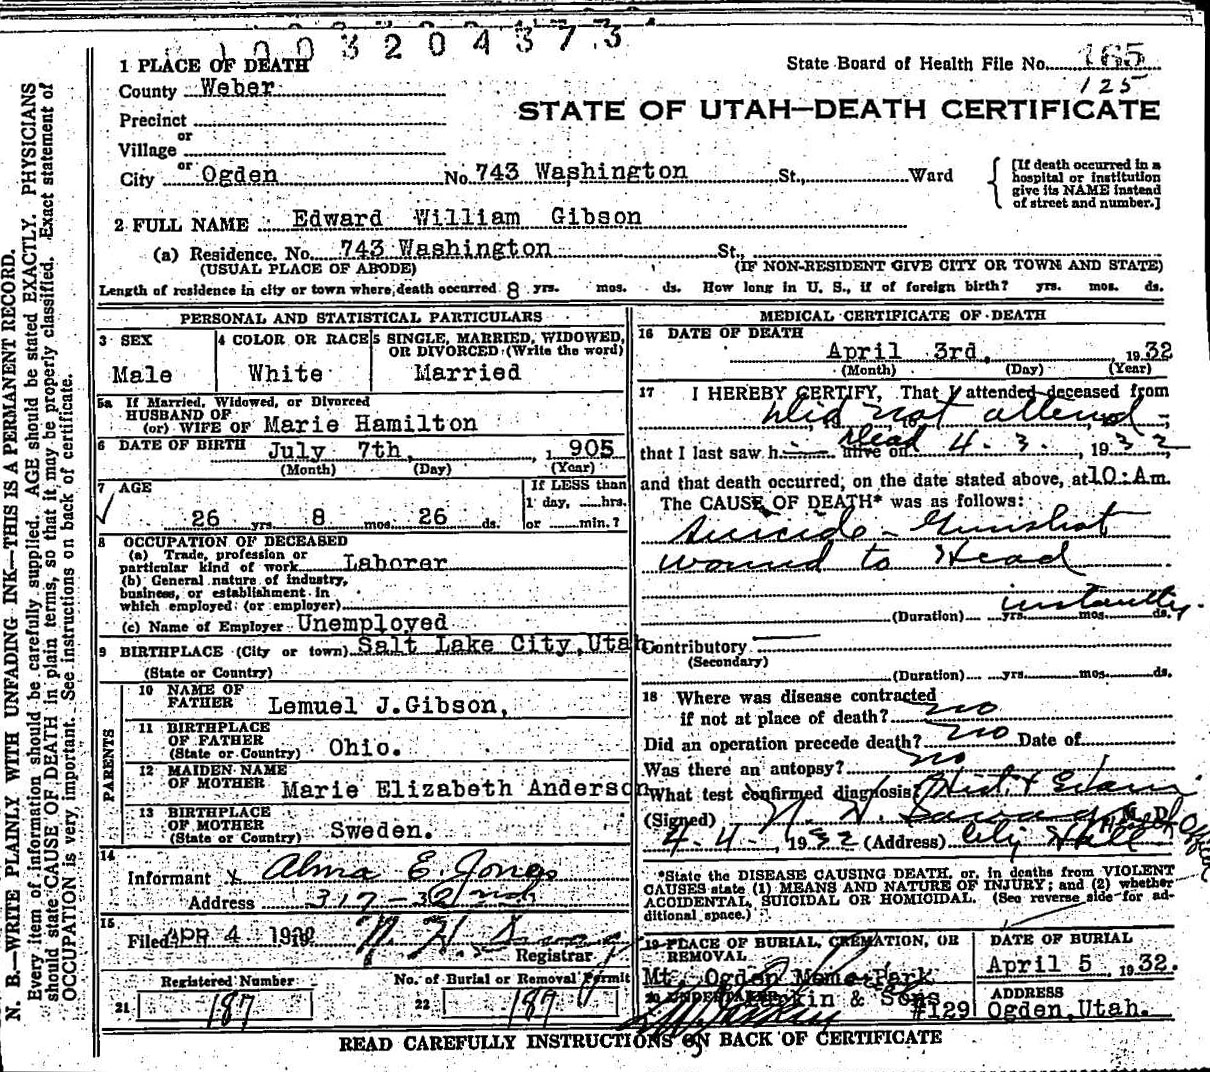 1003204373
State Board of Health File No. 165
125
1 PLACE OF DEATH
County Weber
STATE OF UTAH—DEATH CERTIFICATE
Precinct
or
Village
or
City Ogden No. 743 Washington St., Ward
[If death occurred in a
hospital or institution
give its NAME instead
of street and number.]
2 FULL NAME Edward William Gibson
(a) Residence. No. 743 Washington St.,
(USUAL PLACE OF ABODE) (IF NON-RESIDENT GIVE CITY OR TOWN AND STATE)
Length of residence in city or town where death occurred 8 yrs. mos. ds. How long in U. S., if of foreign birth? yrs. mos. ds.
PERSONAL AND STATISTICAL PARTICULARS
3 SEX
Male
4 COLOR OR RACE
White
5 SINGLE, MARRIED, WIDOWED,
OR DIVORCED (Write the word)
Married
5a If Married, Widowed, or Divorced
HUSBAND OF
(or) WIFE OF Marie Hamilton
6 DATE OF BIRTH July 7th, 1905
(Month) (Day) (Year)
7 AGE
26 yrs. 8 mos. 26 ds.
If LESS than
1 day, hrs.
or min.?
8 OCCUPATION OF DECEASED
(a) Trade, profession or
particular kind of work Laborer
(b) General nature of industry,
business, or establishment in
which employed (or employer)
(c) Name of Employer Unemployed
9 BIRTHPLACE (City or town) Salt Lake City, Utah
(State or Country)
PARENTS
10 NAME OF
FATHER Lemuel J.Gibson,
11 BIRTHPLACE
OF FATHER
(State or Country) Ohio.
12 MAIDEN NAME
OF MOTHER Marie Elizabeth Anderson
13 BIRTHPLACE
OF MOTHER
(State or Country) Sweden.
14
Informant x Alma E. Jones
Address 317-
15
Filed APR 4 1932
Registrar
Registered Number
21 187
No. of Burial or Removal Permit
22 189
MEDICAL CERTIFICATE OF DEATH
16 DATE OF DEATH
April 3rd, 1932
(Month) (Day) (Year)
17 I HEREBY CERTIFY, That I attended deceased from
Did not attend
that I last saw h alive on Dead 4-3-, 1932,
and that death occurred, on the date stated above, at 10:A.m.
The CAUSE OF DEATH* was as follows:
Suicide - Gunshot
wound to Head
instantly.
(Duration) yrs. mos. ds.
Contributory
(Secondary)
(Duration) yrs. mos. ds.
18 Where was disease contracted
if not at place of death? no
Did an operation precede death? no Date of
Was there an autopsy? no
What test confirmed diagnosis? Hist. + Exam
(Signed) M. D.
4-4-, 1932 (Address) City Hall
*State the DISEASE CAUSING DEATH, or, in deaths from VIOLENT
CAUSES state (1) MEANS AND NATURE OF INJURY; and (2) whether
ACCIDENTAL, SUICIDAL OR HOMICIDAL. (See reverse side for ad-
ditional space.)
19 PLACE OF BURIAL, CREMATION, OR
REMOVAL
Mt. Ogden Meme-Park
DATE OF BURIAL
April 5, 1932.
20 UNDERTAKER Larkin & Sons
#129
ADDRESS
Ogden, Utah.
READ CAREFULLY INSTRUCTIONS ON BACK OF CERTIFICATE
N. B.—WRITE PLAINLY WITH UNFADING INK—THIS IS A PERMANENT RECORD.
Every item of information should be carefully supplied. AGE should be stated EXACTLY. PHYSICIANS
should state CAUSE OF DEATH in plain terms, so that it may be properly classified. Exact statement of
OCCUPATION is very important. See instructions on back of certificate.